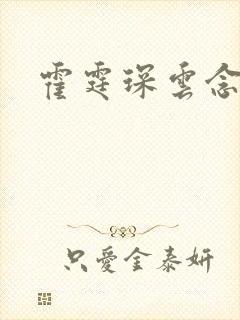 霍霆琛雲念
只愛金泰妍